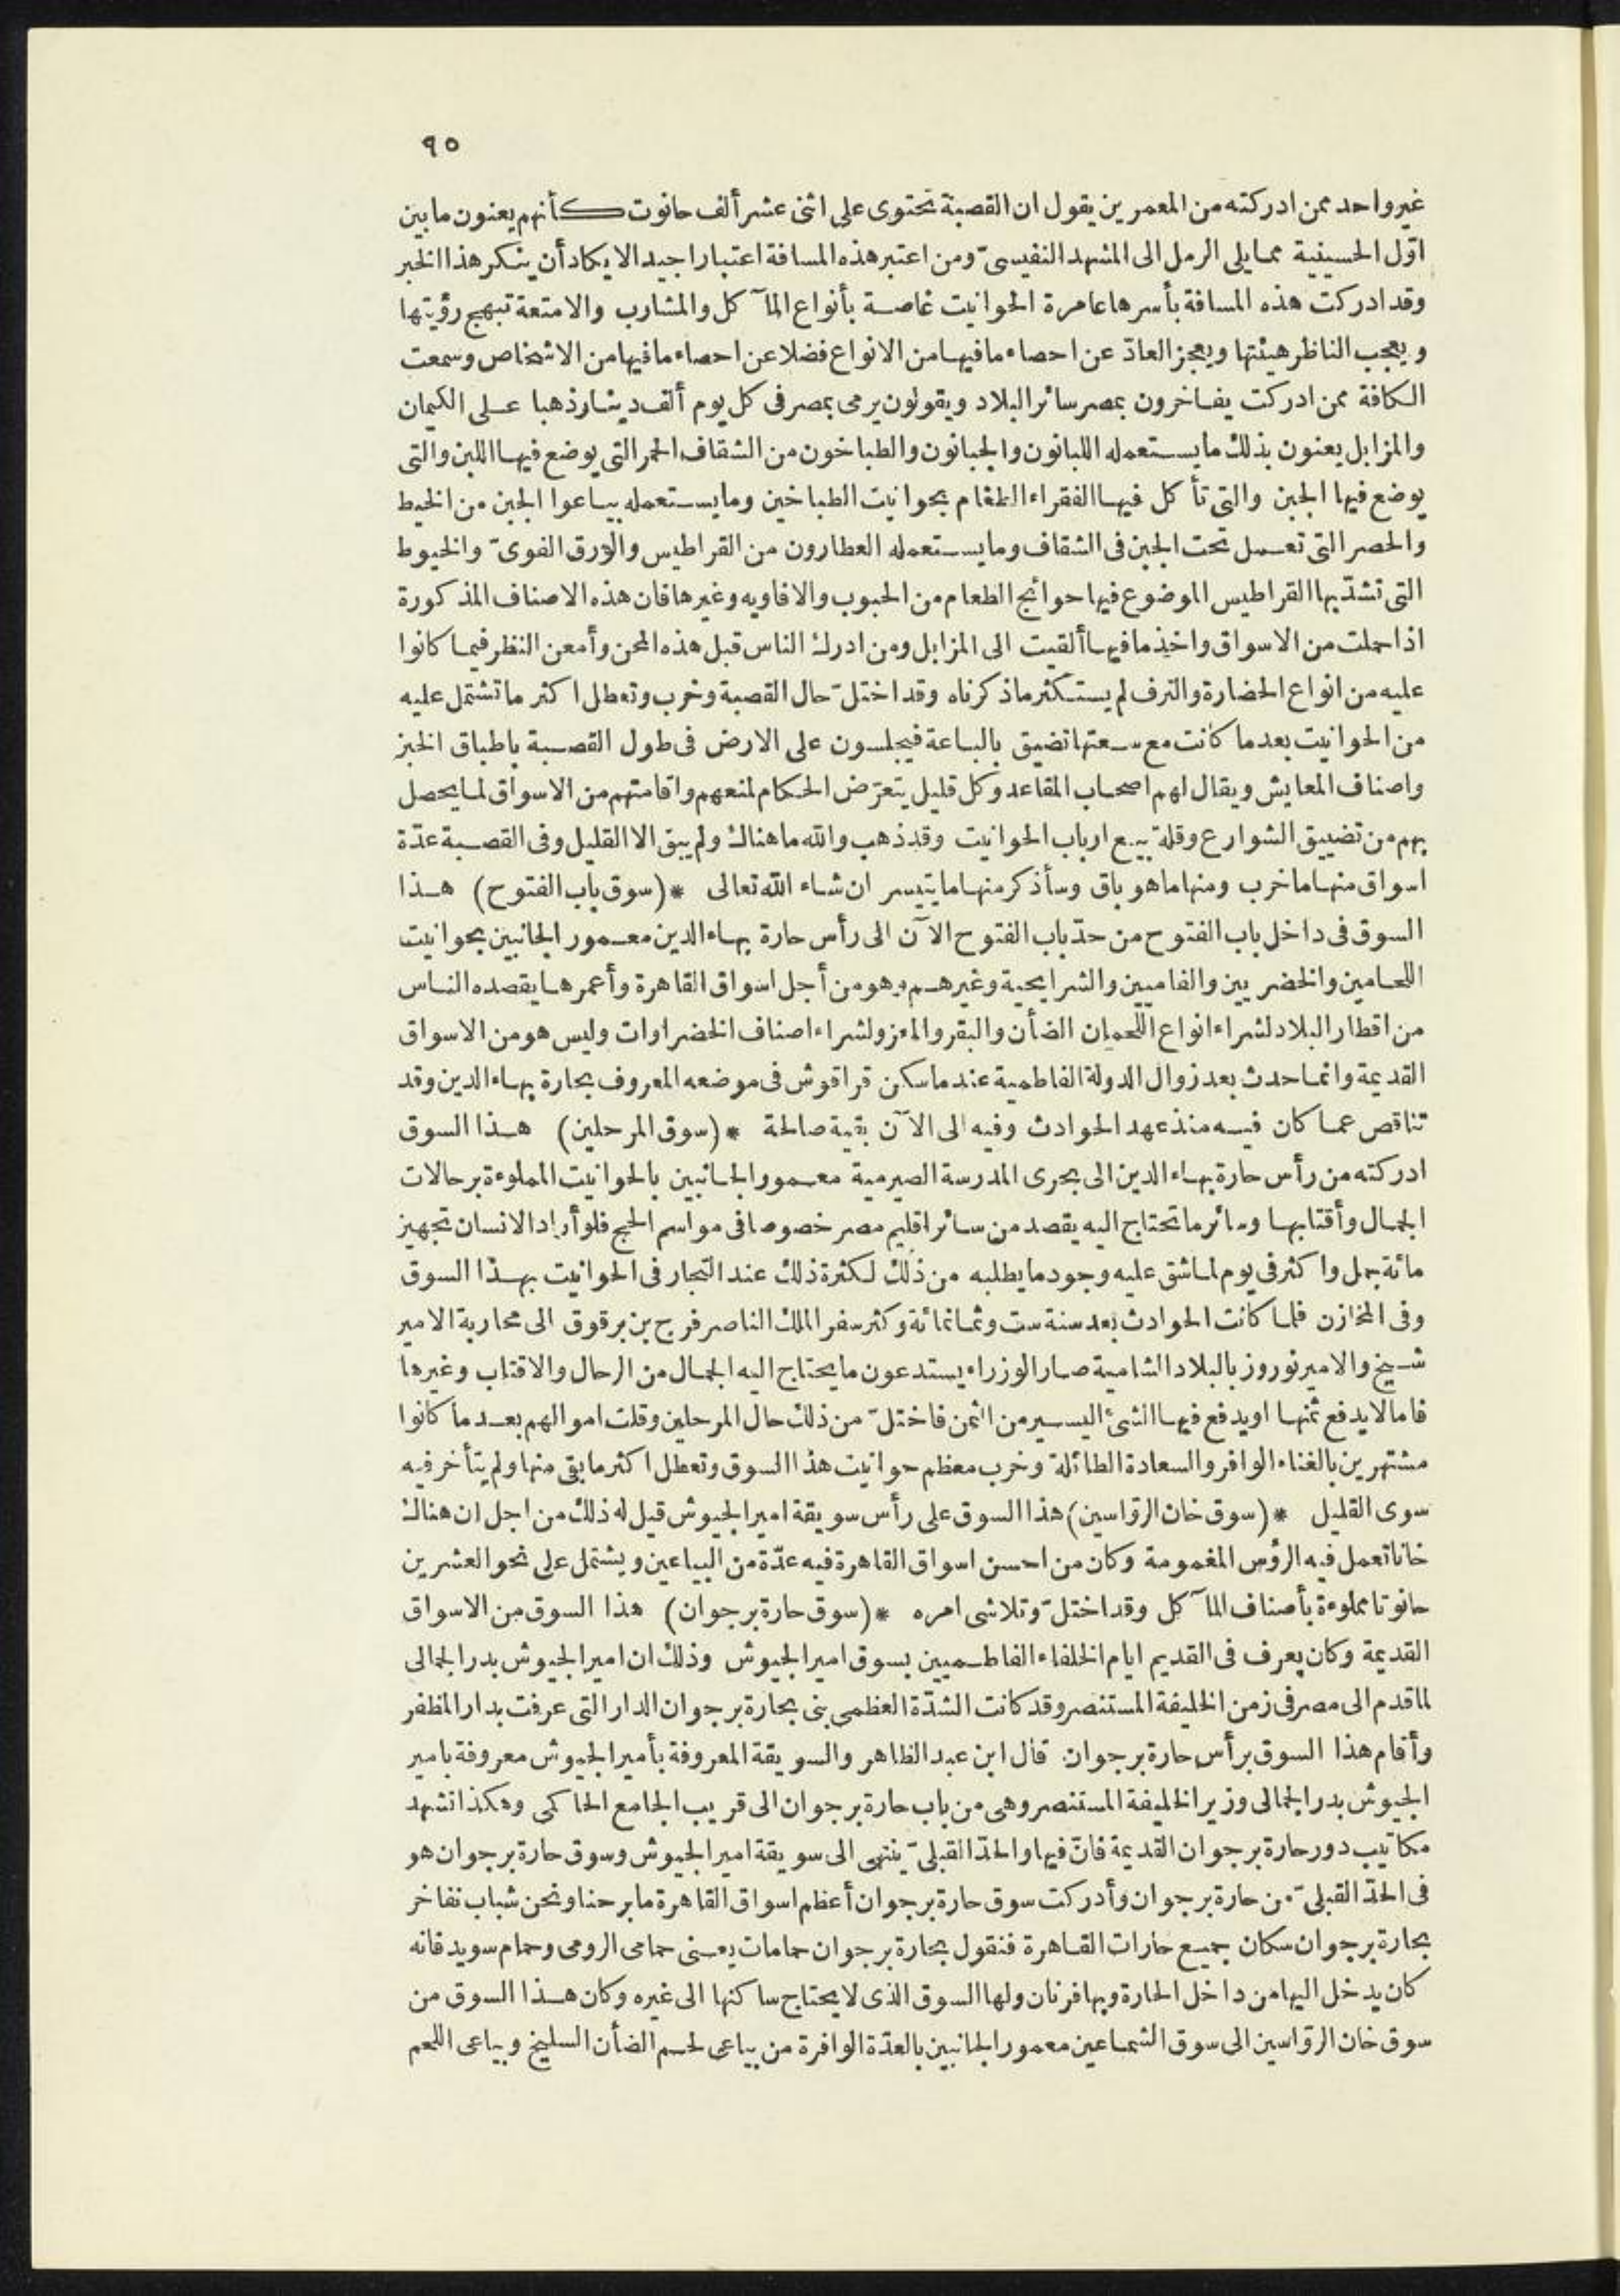 ٩٥
غير واحد ممن ادركته من المعمرين يقول ان القصبة تحتوى على اثنى عشر ألف حانوت كأنهم يعنون ما بين
اوّل الحسينية مما يلى الرمل الى المشهد النفيسىّ ومن اعتبر هذه المسافة اعتبارا جيدا لا يكاد أن ينكر هذا الخبر
وقد ادركت هذه المسافة بأسرها عامرة الحوانيت غاصة بأنواع المآ كل والمشارب والامتعة تبهج رؤيتها
ويعجب الناظر هيئتها ويعجز العادّ عن احصاء ما فيها من الانواع فضلا عن احصاء ما فيها من الاشخاص وسمعت
الكافة ممن ادركت يفاخرون بمصر سائر البلاد ويقولون يرمى بمصر فى كل يوم ألف دينار ذهبا على الكيمان
والمزابل يعنون بذلك ما يستعمله اللبانون والجبانون والطباخون من الشقاف الحمر التى يوضع فيها اللبن والتى
يوضع فيها الجبن والتى تأكل فيها الفقراء الطعام بحوانيت الطباخين وما يستعمله بياعوا الجبن من الخيط
والحصر التى تعمل تحت الجبن فى الشقاف وما يستعمله العطارون من القراطيس والورق الفوىّ والخيوط
التى تشدّ بها القراطيس الموضوع فيها حوائج الطعام من الحبوب والافاويه وغيرها فان هذه الاصناف المذكورة
اذا حملت من الاسواق واخذ ما فيها ألقيت الى المزابل ومن ادرك الناس قبل هذه المحن وأمعن النظر فيما كانوا
عليه من انواع الحضارة والترف لم يستكثر ما ذكرناه وقد اختلّ حال القصبة وخرب وتعطل اكثر ما تشتمل عليه
من الحوانيت بعدما كانت مع سعتها تضيق بالباعة فيجلسون على الارض فى طول القصبة باطباق الخبز
واصناف المعايش ويقال لهم اصحاب المقاعد وكل قليل يتعرّض الحكام لمنعهم واقامتهم من الاسواق لما يحصل
بهم من تضييق الشوارع وقلة بيع ارباب الحوانيت وقد ذهب والله ما هناك ولم يبق الا القليل وفى القصبة عدّة
اسواق منها ما خرب ومنها ما هو باق وسأذكر منها ما يتيسر ان شاء الله تعالى * (سوق باب الفتوح) هذا
السوق فى داخل باب الفتوح من حدّ باب الفتوح الآن الى رأس حارة بهاء الدين معمور الجانبين بحوانيت
اللحامين والخضريين والفاميين والشرايحية وغيرهم وهو من أجل اسواق القاهرة وأعمرها يقصده الناس
من اقطار البلاد لشراء انواع اللحمان الضأن والبقر والمعز ولشراء اصناف الخضراوات وليس هو من الاسواق
القديمة وانما حدث بعد زوال الدولة الفاطمية عندما سكن قراقوش فى موضعه المعروف بحارة بهاء الدين وقد
تناقص عما كان فيه منذ عهد الحوادث وفيه الى الآن بقية صالحة * (سوق المرحلين) هذا السوق
ادركته من رأس حارة بهاء الدين الى بحرى المدرسة الصيرمية معمور الجانبين بالحوانيت المملوءة برحالات
الجمال وأقتابها وسائر ما تحتاج اليه يقصد من سائر اقليم مصر خصوصا فى مواسم الحج فلو أراد الانسان تجهيز
مائة جمل واكثر فى يوم لما شق عليه وجود ما يطلبه من ذلك لكثرة ذلك عند التجار فى الحوانيت بهذا السوق
وفى المخازن فلما كانت الحوادث بعد سنة ست وثمانمائة وكثر سفر الملك الناصر فرج بن برقوق الى محاربة الامير
شيخ والامير نوروز بالبلاد الشامية صار الوزراء يستدعون ما يحتاج اليه الجمال من الرحال والاقتاب وغيرها
فاما لا يدفع ثمنها او يدفع فيها الشئ اليسير من الثمن فاختلّ من ذلك حال المرحلين وقلت اموالهم بعد ما كانوا
مشتهرين بالغناء الوافر والسعادة الطائلة وخرب معظم حوانيت هذا السوق وتعطل اكثر ما بقى منها ولم يتأخر فيه
سوى القليل * (سوق خان الروّاسين) هذا السوق على رأس سويقة امير الجيوش قيل له ذلك من اجل ان هناك
خانا تعمل فيه الرؤس المغمومة وكان من احسن اسواق القاهرة فيه عدّة من البياعين ويشتمل على نحو العشرين
حانوتا مملوءة بأصناف المآ كل وقد اختلّ وتلاشى امره * (سوق حارة برجوان) هذا السوق من الاسواق
القديمة وكان يعرف فى القديم ايام الخلفاء الفاطميين بسوق امير الجيوش وذلك ان امير الجيوش بدر الجمالى
لما قدم الى مصر فى زمن الخليفة المستنصر وقد كانت الشدّة العظمى بنى بحارة برجوان الدار التى عرفت بدار المظفر
وأقام هذا السوق برأس حارة برجوان قال ابن عبد الظاهر والسويقة المعروفة بأمير الجيوش معروفة بامير
الجيوش بدر الجمالى وزير الخليفة المستنصر وهى من باب حارة برجوان الى قريب الجامع الحاكمى وهكذا تشهد
مكاتيب دور حارة برجوان القديمة فانّ فيها والحدّ القبلىّ ينتهى الى سويقة امير الجيوش وسوق حارة برجوان هو
فى الحدّ القبلىّ من حارة برجوان وأدركت سوق حارة برجوان أعظم اسواق القاهرة ما برحنا ونحن شباب نفاخر
بحارة برجوان سكان جميع حارات القاهرة فنقول بحارة برجوان حمامات يعنى حمامى الرومى وحمام سويد فانه
كان يدخل اليها من داخل الحارة وبها فرنان ولها السوق الذى لا يحتاج ساكنها الى غيره وكان هذا السوق من
سوق خان الروّاسين الى سوق الشماعين معمور الجانبين بالعدّة الوافرة من بياعى لحم الضأن السليخ وبياعى اللحم